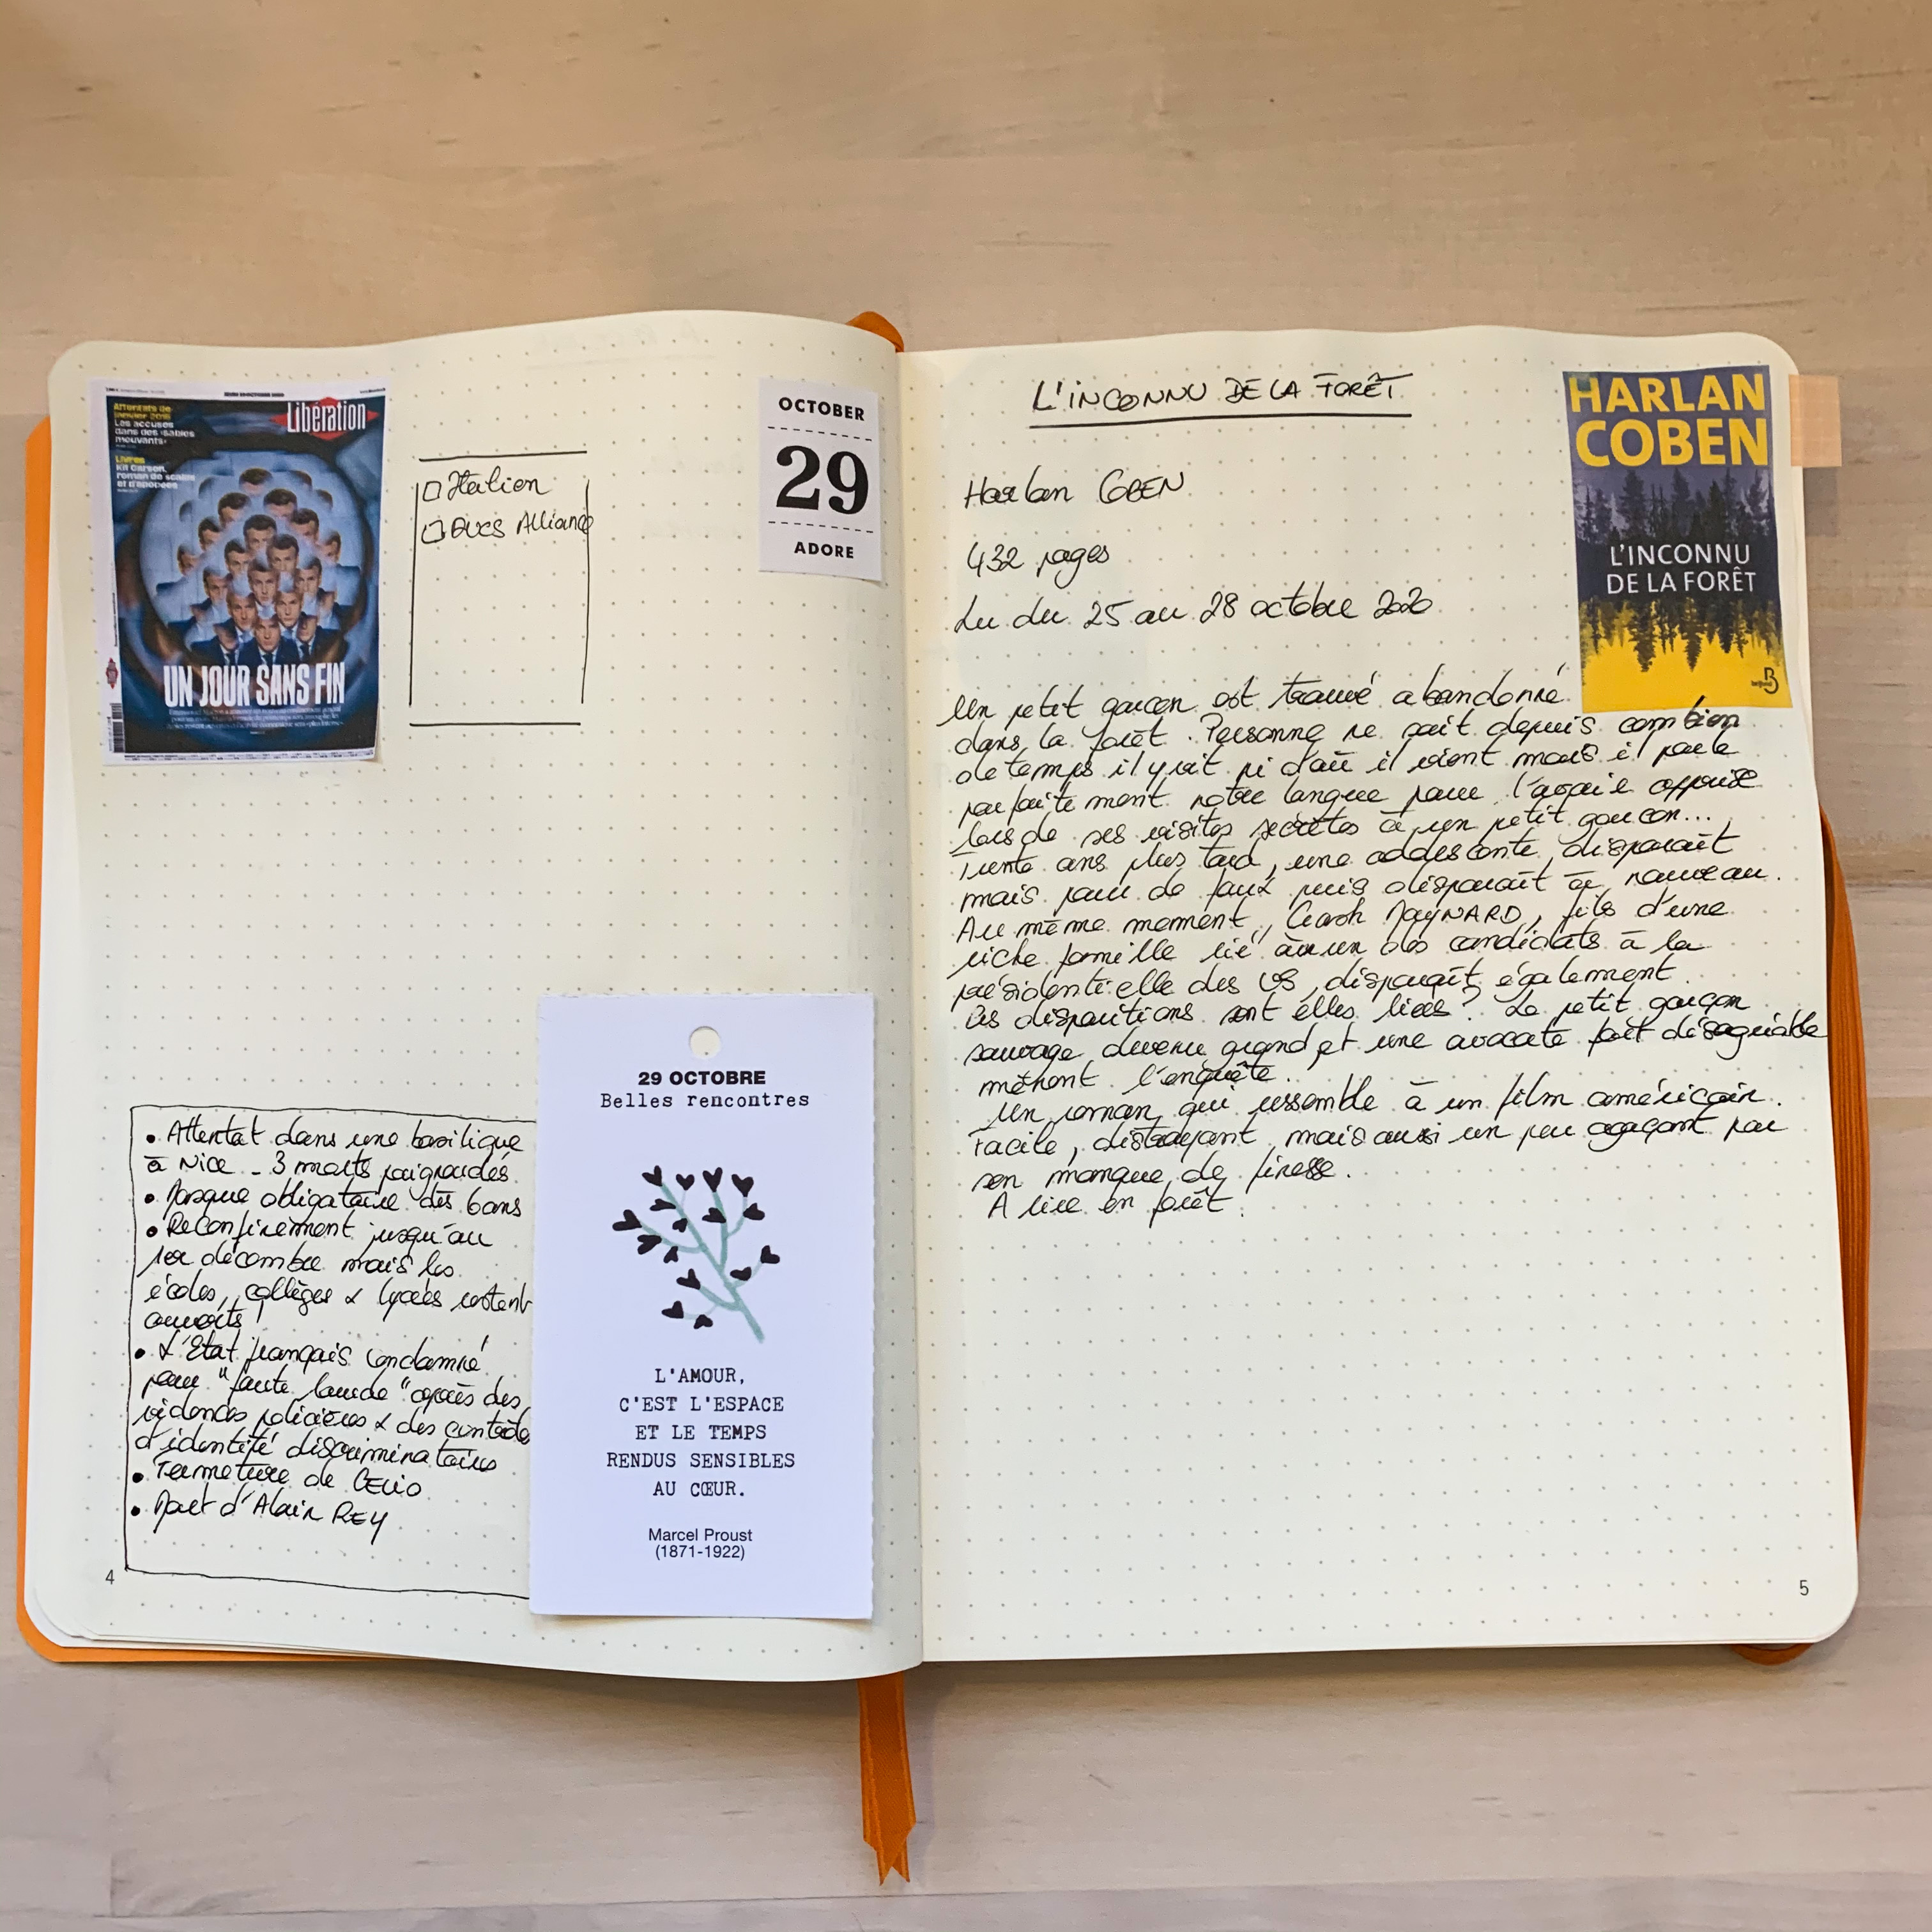 Libération
Attentats de
janvier 2015
Les accusés
dans des «sables
mouvants»
Livres
Kit Carson,
roman de scalps
et d'épopées
UN JOUR SANS FIN
□ Italien
□ Docs Alliance
OCTOBER
29
ADORE
• Attentat dans une basilique
à Nice - 3 morts poignardés
• Masque obligatoire dès 6 ans
• Reconfinement jusqu'au
1er décembre mais les
écoles, collèges & lycées restent
ouverts !
• L'Etat français condamné
pour "faute lourde" après des
violences policières & des contrôles
d'identité discriminatoires
• Fermeture de CELIO
• Mort d'Alain REY
4
29 OCTOBRE
Belles rencontres
L'AMOUR,
C'EST L'ESPACE
ET LE TEMPS
RENDUS SENSIBLES
AU CŒUR.
Marcel Proust
(1871-1922)
L'INCONNU DE LA FORÊT
Harlan COBEN
432 pages
Lu du 25 au 28 octobre 2020
HARLAN
COBEN
L'INCONNU
DE LA FORÊT
belfond
Un petit garçon est trouvé abandonné
dans la forêt. Personne ne sait depuis combien
de temps il y vit ni d'où il vient mais il parle
parfaitement notre langue pour l'avoir apprise
lors de ses visites secrètes à un petit garçon...
Trente ans plus tard, une adolescente disparait
mais pour de faux puis disparait à nouveau.
Au même moment, Crash MAYNARD, fils d'une
riche famille lié à un des candidats à la
présidentielle des US, disparait également.
Les disparitions sont elles liées? Le petit garçon
sauvage devenu grand et une avocate fort désagréable
mènont l'enquête.
Un roman qui ressemble à un film américain.
Facile, distrayant mais aussi un peu agaçant par
son manque de finesse.
A lire en forêt.
5